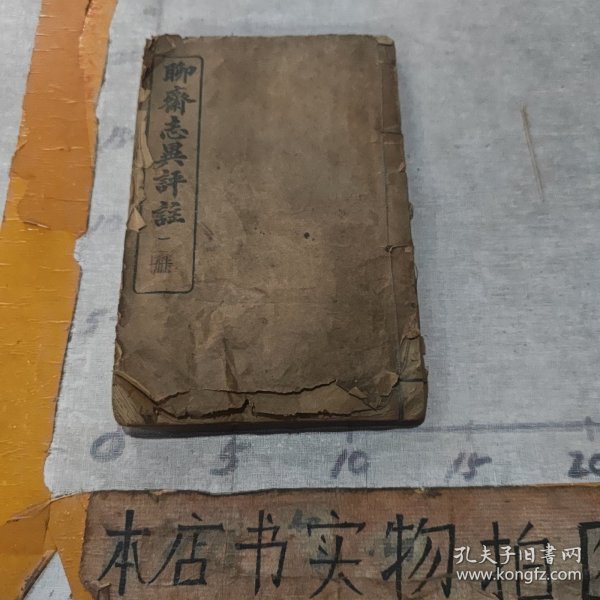 聊齋志異評註 一册
15
10
5
0 5 10 15 20
本店书实物拍
孔夫子旧书网
www.kongfz.com